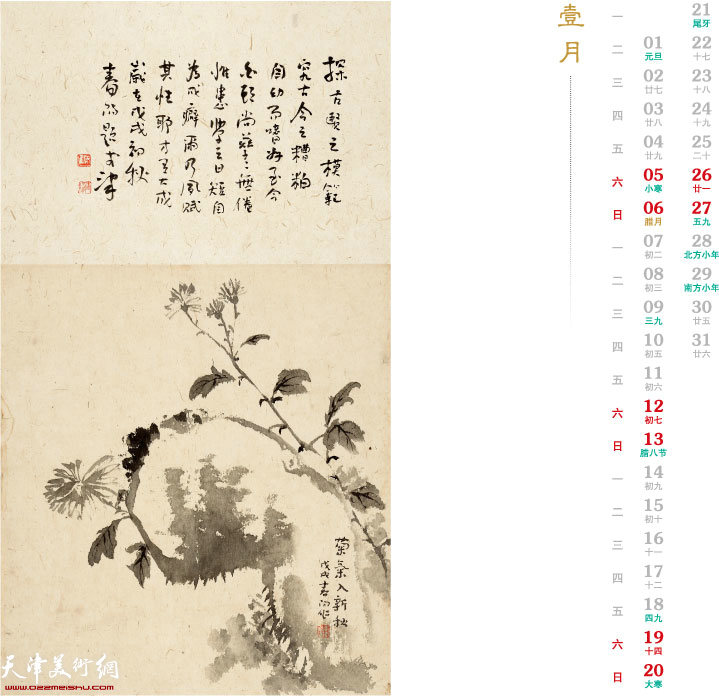 探古賢之模範
究古今之糟粕
自幼而嗜好至今
尚孳孳無倦
惟患學之日短自
為成癖爾乃風賦
其性耶
歲在戊戌初秋
菊氣入新秋
戊戌
天津美術網
www.022meishu.com
壹月
一
二 01 元旦
三 02 廿七
四 03 廿八
五 04 廿九
六 05 小寒
日 06 腊月
一 07 初二
二 08 初三
三 09 三九
四 10 初五
五 11 初六
六 12 初七
日 13 腊八节
一 14 初九
二 15 初十
三 16 十一
四 17 十二
五 18 四九
六 19 十四
日 20 大寒
21 尾牙
22 十七
23 十八
24 十九
25 二十
26 廿一
27 五九
28 北方小年
29 南方小年
30 廿五
31 廿六